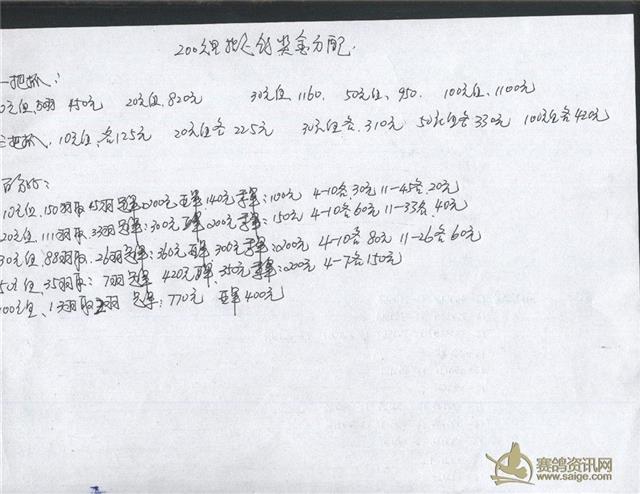 200公里指定鸽奖金分配.
一把抓:
0元组, 450元 20元组, 820元 30元组, 1160. 50元组, 950. 100元组, 1100元
三把抓, 10元组, 各125元 20元组各225元 30元组各, 310元 50元组各330元 100元组各420元
百分好:
10元组, 150羽取45羽冠军:200元 亚军140元 季军:100元 4-10各30元 11-45各20元
20元组, 111羽取33羽冠军:300元 亚军200元 季军:150元 4-10各60元 11-33各40元
30元组, 88羽取. 26羽冠军:360元 亚军300元 季军:200元 4-10各80元 11-26各60元
50元组, 35羽取: 7羽冠军 420元 亚军:350元 季军:200元 4-7各150元
00元组, 13羽取2羽 冠军:770元 亚军400元
赛鸽资讯网
www.saige.com